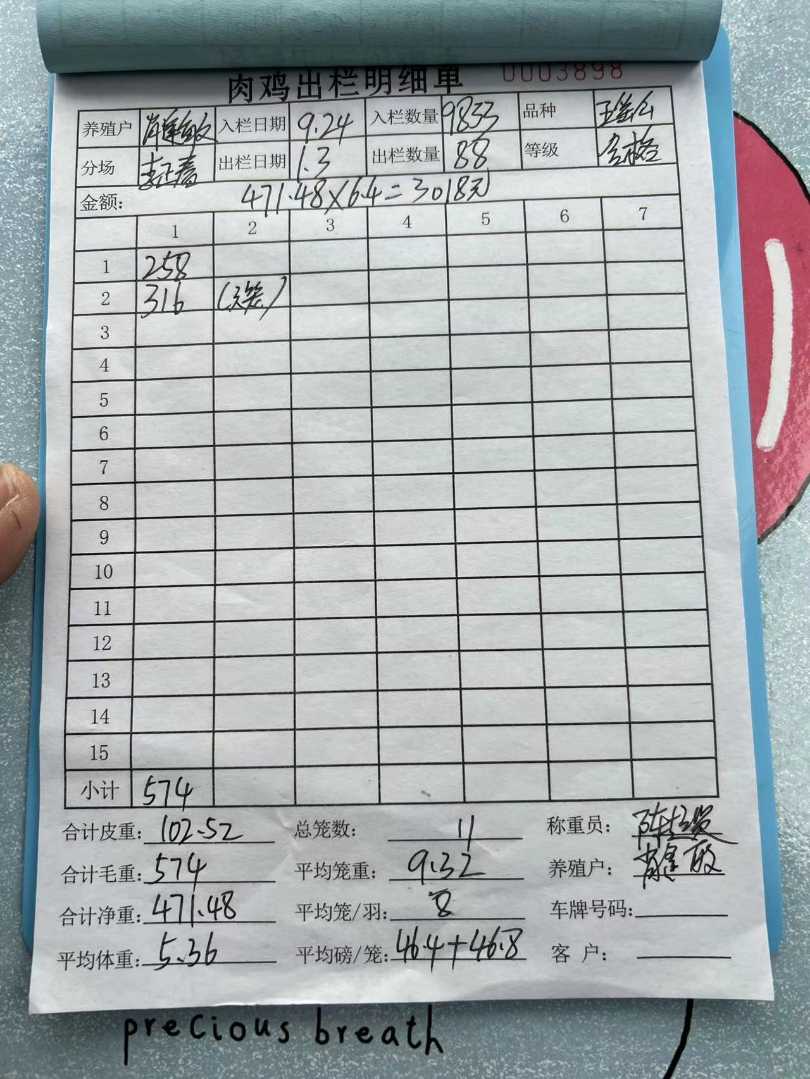 肉鸡出栏明细单 0003898
养殖户 入栏日期 9.24 入栏数量 9853 品种
分场 出栏日期 1.3 出栏数量 88 等级 合格
金额: 471.48×6.4=3018元
1 2 3 4 5 6 7
1 258
2 316
3
4
5
6
7
8
9
10
11
12
13
14
15
小计 574
合计皮重: 102.52 总笼数: 11 称重员:
合计毛重: 574 平均笼重: 9.32 养殖户:
合计净重: 471.48 平均笼/羽: 8 车牌号码:
平均体重: 5.36 平均磅/笼: 46.4+46.8 客户:
precious breath